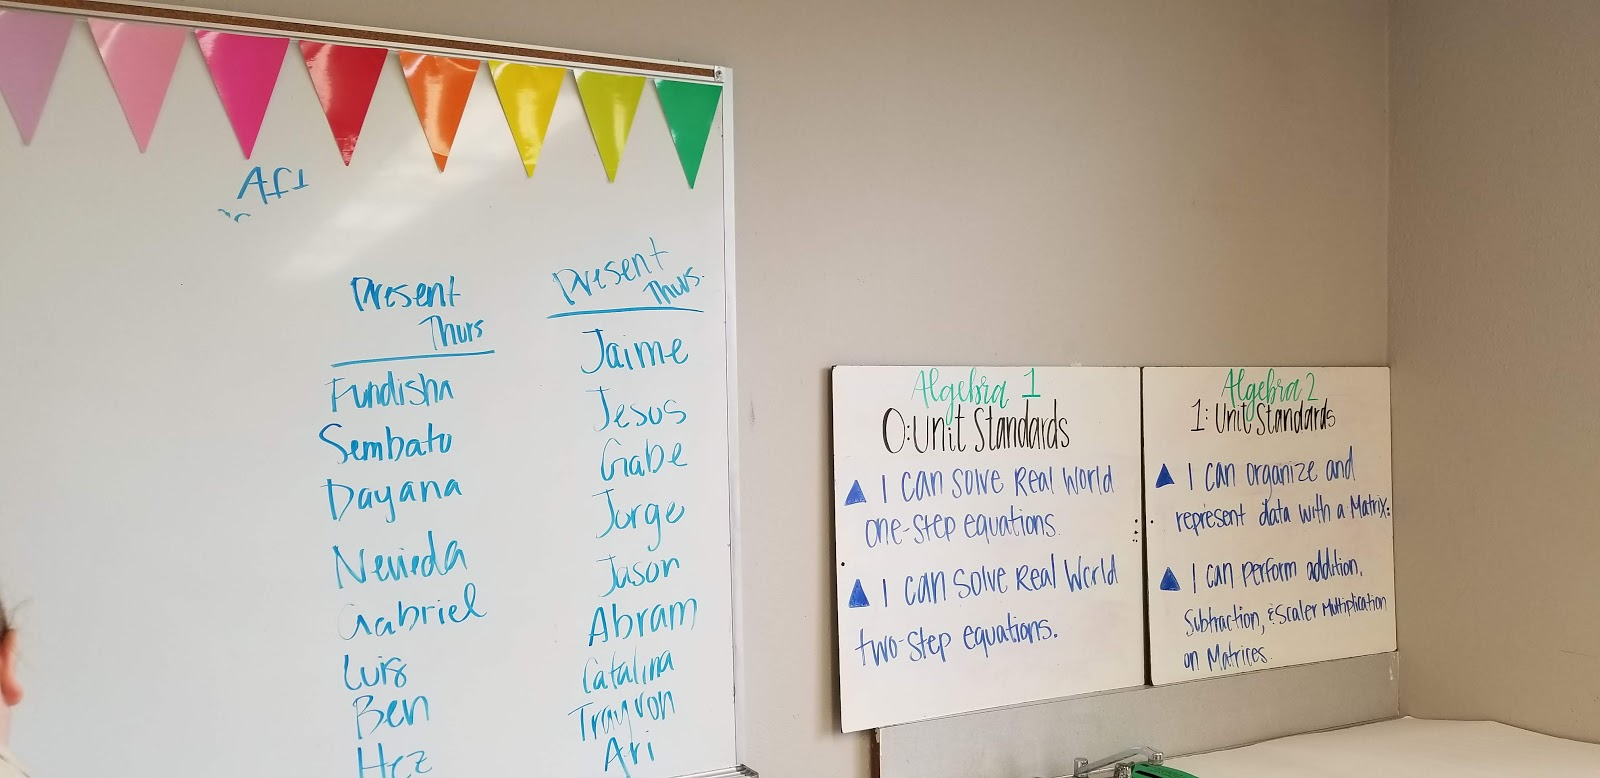 Present
Thurs
Fundisha
Sembatu
Dayana
Nevieda
Gabriel
Luis
Ben
Hez
Present
Thurs.
Jaime
Jesus
Gabe
Jorge
Jason
Abram
Catalina
Trayvon
Ari
Algebra 1
0: Unit Standards
I can solve Real World
one-step equations.
I can solve Real World
two-step equations.
Algebra 2
1: Unit Standards
I can organize and
represent data with a Matrix.
I can perform addition,
Subtraction, & Scaler Multiplication
on Matrices.